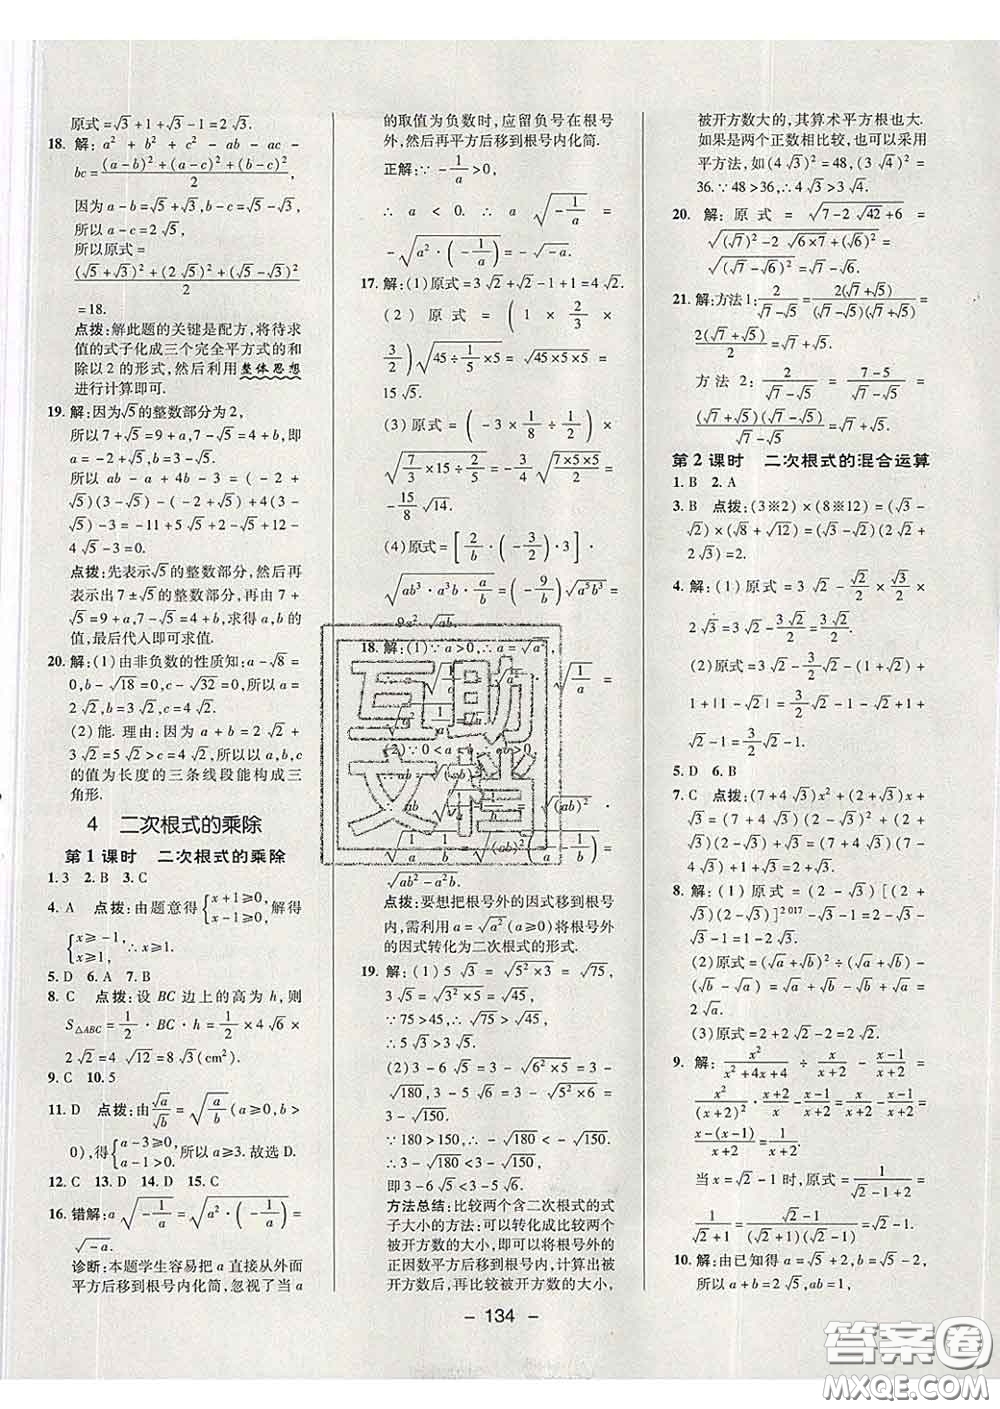 原式=√3+1+√3-1=2√3.
18. 解: a²+b²+c²-ab-ac-
bc=((a-b)²+(a-c)²+(b-c)²)/2,
因为a-b=√5+√3,b-c=√5-√3,
所以a-c=2√5,
所以原式=
((√5+√3)²+(2√5)²+(√5-√3)²)/2
=18.
点拨:解此题的关键是配方,将待求
值的式子化成三个完全平方式的和
除以2的形式,然后利用整体思想
进行计算即可.
19. 解:因为√5的整数部分为2,
所以7+√5=9+a,7-√5=4+b,即
a=-2+√5,b=3-√5.
所以ab-a+4b-3=(-2+
√5)(3-√5)-(-2+√5)+4(3-
√5)-3=-11+5√5+2-√5+12-
4√5-3=0.
点拨:先表示√5的整数部分,然后再
表示出7±√5的整数部分,再由7+
√5=9+a,7-√5=4+b,求得a,b的
值,最后代入即可求值.
20. 解:(1)由非负数的性质知:a-√8=
0,b-√18=0,c-√32=0,所以a=
2√2,b=3√2,c=4√2.
(2)能. 理由:因为a+b=2√2+
3√2=5√2>c=4√2,所以以a,b,c
的值为长度的三条线段能构成三
角形.
4 二次根式的乘除
第1课时 二次根式的乘除
1. 3 2. B 3. C
4. A 点拨:由题意得{x+1≥0, x-1≥0, 解得
{x≥-1, x≥1, ∴x≥1.
5. D 6. A 7. B
8. C 点拨:设BC边上的高为h,则
S△ABC=1/2·BC·h=1/2×4√6×
2√2=4√12=8√3(cm²).
9. C 10. 5
11. D 点拨:由√a/√b=√(a/b)(a≥0,b>
0),得{a-3≥0, a-1>0. 所以a≥3.故选D.
12. C 13. D 14. D 15. C
16. 错解:a√(-1/a)=√(a²·(-1/a))=
√-a.
诊断:本题学生容易把a直接从外面
平方后移到根号内化简,忽视了当a
的取值为负数时,应留负号在根号
外,然后再平方后移到根号内化简.
正解:∵-1/a>0,
∴a<0. ∴a√(-1/a)=
-√(a²·(-1/a))=-√-a.
17. 解:(1)原式=3√2+√2-1+1=4√2.
(2)原式=(1×2/3×
3/2)√(45÷1/5×5)=√(45×5×5)=
15√5.
(3)原式=(-3×1/8÷1/2)×
√(7/3×15÷5/2)=-3/4√((7×5×5)/2)=
-15/8√14.
(4)原式=[2/b·(-3/2)·3]·
√(ab³·a³b·a/b)=(-9/b)√(a⁵b³)=
-9a²√ab.
18. 解:(1)∵a>0,∴a=√a²,
(2)∵0<a
√(ab²-a²b).
点拨:要想把根号外的因式移到根号
内,需利用a=√a²(a≥0)将根号外
的因式转化为二次根式的形式.
19. 解:(1)5√3=√(5²×3)=√75,
3√5=√(3²×5)=√45.
∵75>45,∴√75>√45,
∴5√3>3√5.
(2)3-6√5=3-√(6²×5)=3-
√180,3-5√6=3-√(5²×6)=
3-√150.
∵180>150,∴-√180<-√150.
∴3-√180<3-√150,
即3-6√5<3-5√6.
方法总结:比较两个含二次根式的式
子大小的方法:可以转化成比较两个
被开方数的大小,即可以将根号外的
正因数平方后移到根号内,计算出被
开方数后,再比较被开方数的大小,
被开方数大的,其算术平方根也大.
如果是两个正数相比较,也可以采用
平方法,如(4√3)²=48,(3√4)²=
36.∵48>36,∴4√3>3√4.
20. 解:原式=√(7-2√42+6)=
√((√7)²-2√(6×7)+(√6)²)=
√((√7-√6)²)=√7-√6.
21. 解:方法1:2/(√7-√5)=2(√7+√5)/((√7-√5)(√7+√5))=
2(√7+√5)/2=√7+√5.
方法2:2/(√7-√5)=(7-5)/(√7-√5)=
(√7+√5)(√7-√5)/(√7-√5)=√7+√5.
第2课时 二次根式的混合运算
1. B 2. A
3. B 点拨:(3※2)×(8※12)=(√3-
√2)×(√8+√12)=(√3-√2)(2√2+
2√3)=2.
4. 解:(1)原式=3√2-√2/2×√3/2×
2√3=3√2-3√2/2=3√2/2.
(2)原式=√2/2×(√2+1)+
1+|1-√2|-1=1+√2/2+1+
√2-1-1=3/2√2.
5. D 6. B
7. C 点拨:(7+4√3)x²+(2+√3)x+
√3=(7+4√3)(2-√3)²+(2+√3)·
(2-√3)+√3=(7+4√3)(7-
4√3)+(4-3)+√3=1+1+√3=2+√3.
8. 解:(1)原式=[(2-√3)(2+
√3)]²⁰¹⁷·(2+√3)-√3-1=2+√3
-√3-1=1.
(2)原式=(√a+√b)-
(√b-√a)=√a+√b-√b+√a=
2√a.
(3)原式=2+2√2-2√2=2.
9. 解:x²/(x²+4x+4)÷x/(x+2)-(x-1)/(x+2)=
x²/(x+2)²·(x+2)/x-(x-1)/(x+2)=x/(x+2)-(x-1)/(x+2)=
(x-(x-1))/(x+2)=1/(x+2).
当x=√2-1时,原式=1/(√2-1+2)=
1/(√2+1)=(√2-1)/((√2+1)(√2-1))=√2-1.
10. 解:由已知得a=√5+2,b=√5-2,
所以a+b=2√5,ab=1,
- 134 -
互助
文档
答案圈
MXQE.COM